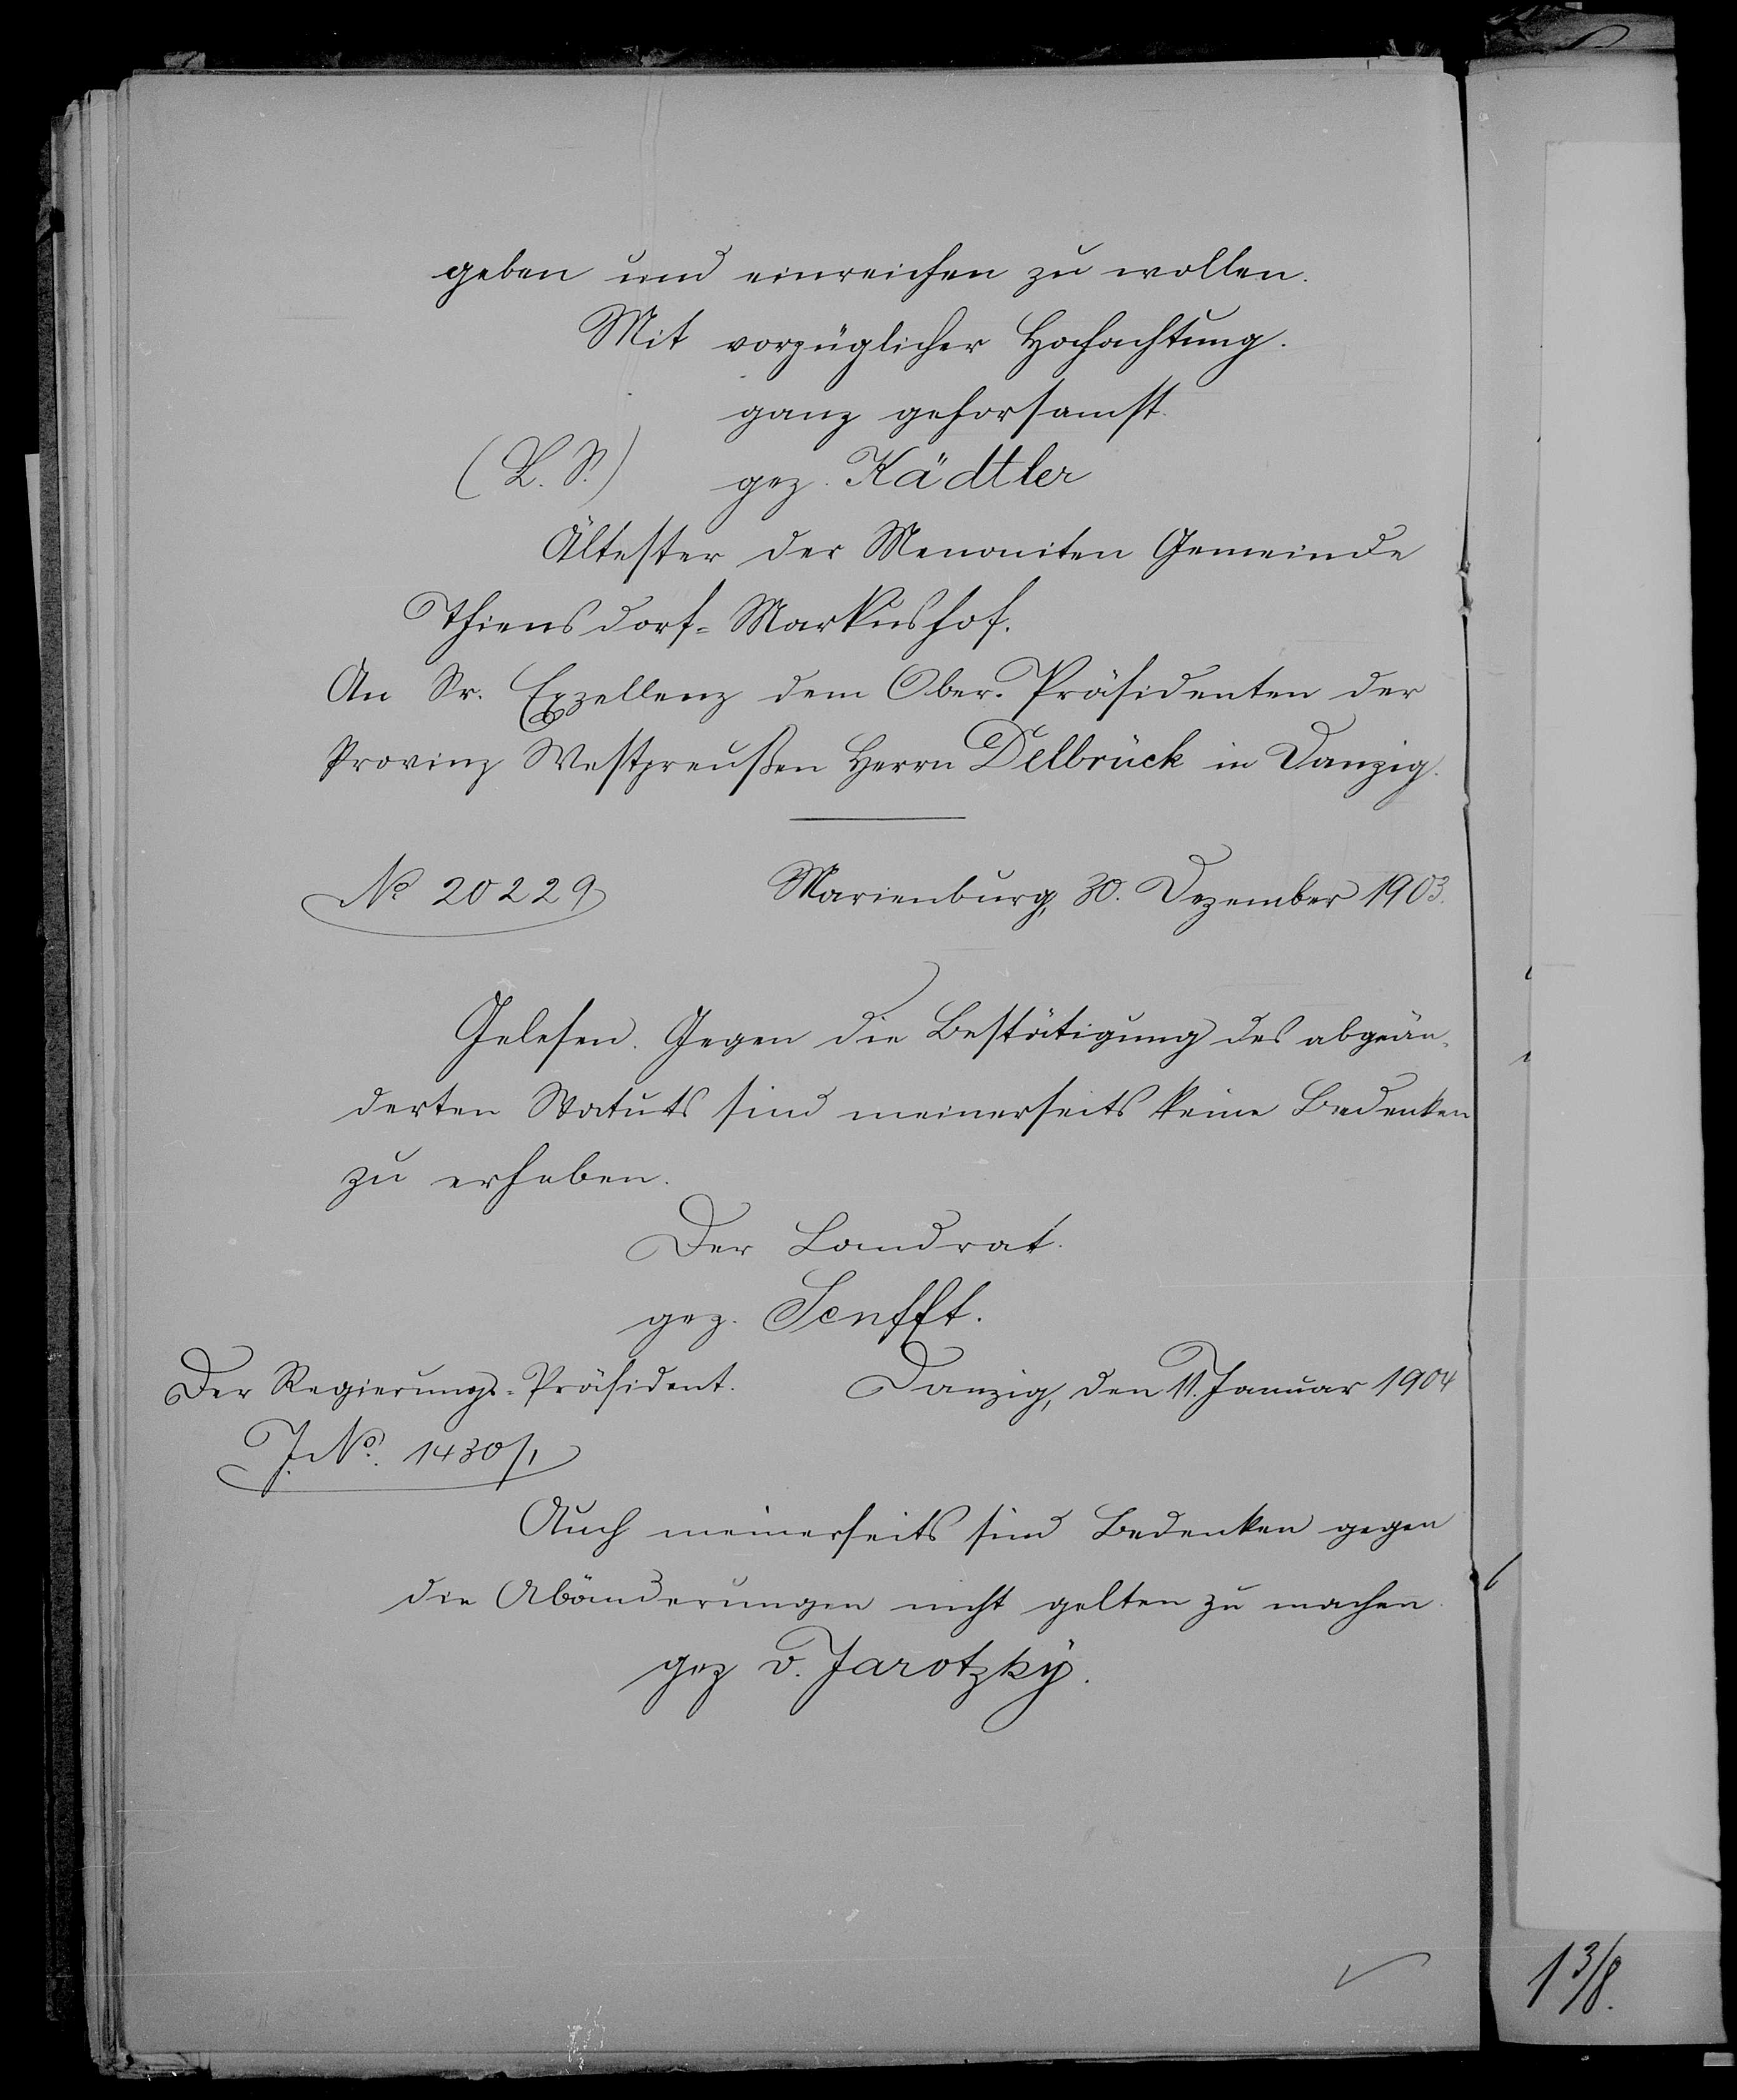 geben und einreichen zu wollen.
Mit vorzüglicher Hochachtung.
ganz gehorsamst.
(L. S.) gez. Kädtler
Ältester der Menoniten Gemeinde
Thiensdorf-Markushof.
An Sr. Exzellenz dem Ober-Präsidenten der
Provinz Westpreußen Herrn Delbrück in Danzig.
No 20229 Marienburg, 30. Dezember 1903.
Gelesen. Gegen die Bestätigung des abgeän-
derten Statuts sind meinerseits keine Bedenken
zu erheben.
Der Landrat.
gez. Senfft.
Der Regierungs-Präsident. Danzig, den 11. Januar 1904
J. No. 1430/1
Auch meinerseits sind Bedenken gegen
die Abänderungen nicht gelten zu machen.
gez v. Jarotzky.
13/8.